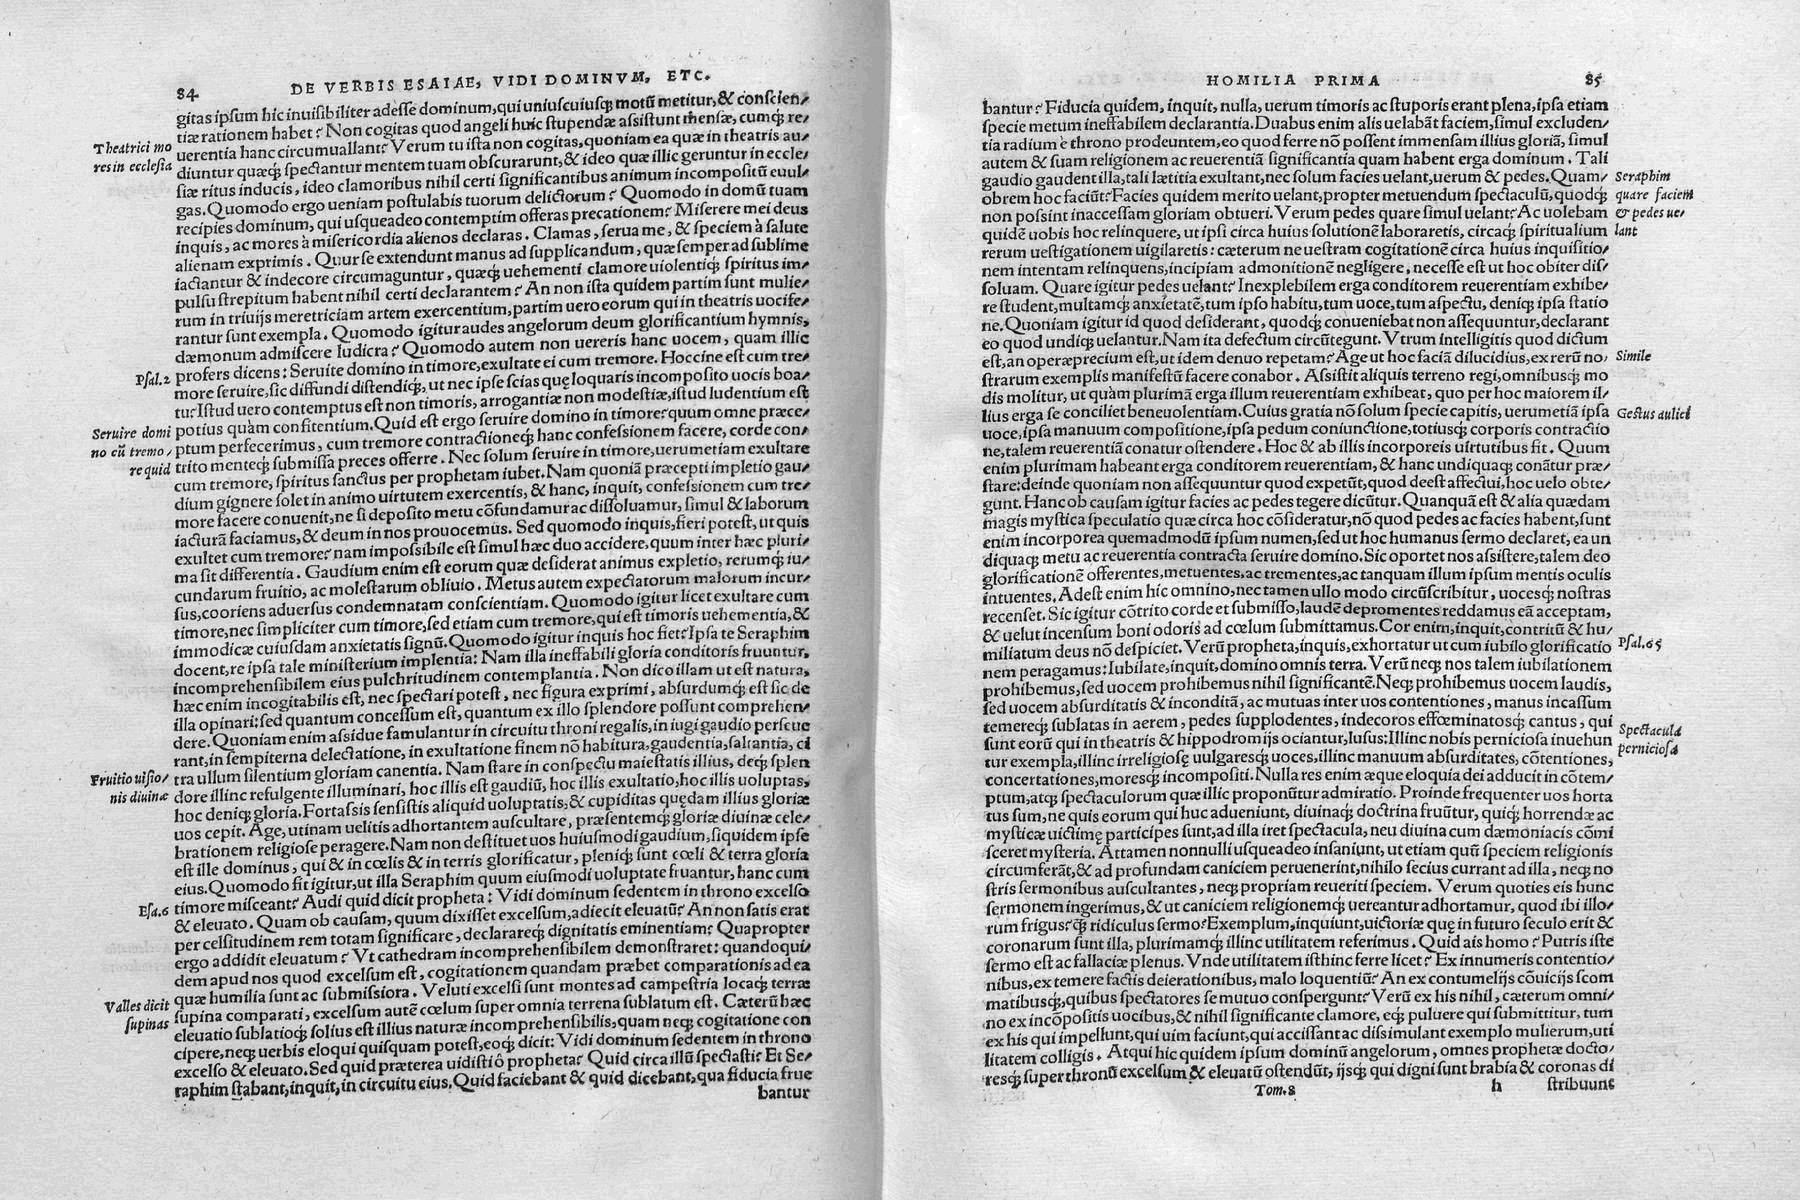 84 DE VERBIS ESAIAE, VIDI DOMINVM, ETC.
gitas ipsum hic inuisibiliter adesse dominum, qui uniuscuiusq́; motũ metitur, & conscien/
tiæ rationem habet? Non cogitas quod angeli huic stupendæ assistunt mensæ, cumq́; re/
Theatrici mo
uerentia hanc circumuallant? Verum tu ista non cogitas, quoniam ea quæ in theatris au/
res in ecclesia
diuntur quæq́; spectantur mentem tuam obscurarunt, & ideo quæ illic geruntur in eccle/
siæ ritus inducis, ideo clamoribus nihil certi significantibus animum incompositũ euul/
gas. Quomodo ergo ueniam postulabis tuorum delictorum? Quomodo in domũ tuam
recipies dominum, qui usqueadeo contemptim offeras precationem? Miserere mei deus
inquis, ac mores à misericordia alienos declaras. Clamas, serua me, & speciem à salute
alienam exprimis. Quur se extendunt manus ad supplicandum, quæ semper ad sublime
iactantur & indecore circumaguntur, quæq́; uehementi clamore uiolentiq́; spiritus im/
pulsu strepitum habent nihil certi declarantem? An non ista quidem partim sunt mulie/
rum in triuijs meretriciam artem exercentium, partim uero eorum qui in theatris uocife/
rantur sunt exempla. Quomodo igitur audes angelorum deum glorificantium hymnis,
dæmonum admiscere ludicra? Quomodo autem non uereris hanc uocem, quam illic
Psal.2
profers dicens: Seruite domino in timore, exultate ei cum tremore. Hoccine est cum tre/
more seruire, sic diffundi distendiq́;, ut nec ipse scias quę loquaris incomposito uocis boa/
tu? Istud uero contemptus est non timoris, arrogantiæ non modestiæ, istud ludentium est
Seruire domi
potius quàm confitentium. Quid est ergo seruire domino in timore? quum omne præce/
no cũ tremo/
ptum perfecerimus, cum tremore contractioneq́; hanc confessionem facere, corde con/
re quid
trito menteq́; submissa preces offerre. Nec solum seruire in timore, uerumetiam exultare
cum tremore, spiritus sanctus per prophetam iubet. Nam quoniã præcepti impletio gau/
dium gignere solet in animo uirtutem exercentis, & hanc, inquit, confessionem cum tre/
more facere conuenit, ne si deposito metu cõfundamur ac dissoluamur, simul & laborum
iacturã faciamus, & deum in nos prouocemus. Sed quomodo inquis, fieri potest, ut quis
exultet cum tremore? nam impossibile est simul hæc duo accidere, quum inter hæc pluri/
ma sit differentia. Gaudium enim est eorum quæ desiderat animus expletio, rerumq́; iu/
cundarum fruitio, ac molestarum obliuio. Metus autem expectatorum malorum incur/
sus, cooriens aduersus condemnatam conscientiam. Quomodo igitur licet exultare cum
timore, nec simpliciter cum timore, sed etiam cum tremore, qui est timoris uehementia, &
immodicæ cuiusdam anxietatis signũ. Quomodo igitur inquis hoc fiet? Ipsa te Seraphim
docent, re ipsa tale ministerium implentia: Nam illa ineffabili gloria conditoris fruuntur,
incomprehensibilem eius pulchritudinem contemplantia. Non dico illam ut est natura,
hæc enim incogitabilis est, nec spectari potest, nec figura exprimi, absurdumq́; est sic de
illa opinari: sed quantum concessum est, quantum ex illo splendore possunt comprehen/
dere. Quoniam enim assidue famulantur in circuitu throni regalis, in iugi gaudio perseue
rant, in sempiterna delectatione, in exultatione finem nõ habitura, gaudentia, saltantia, ci
Fruitio uisio/
tra ullum silentium gloriam canentia. Nam stare in conspectu maiestatis illius, deq́; splen
nis diuinæ
dore illinc refulgente illuminari, hoc illis est gaudiũ, hoc illis exultatio, hoc illis uoluptas,
hoc deniq́; gloria. Fortassis sensistis aliquid uoluptatis, & cupiditas quędam illius gloriæ
uos cepit. Age, utinam uelitis adhortantem auscultare, præsentemq́; gloriæ diuinæ cele/
brationem religiose peragere. Nam non destituet uos huiusmodi gaudium, siquidem ipse
est ille dominus, qui & in cœlis & in terris glorificatur, pleniq́; sunt cœli & terra gloria
eius. Quomodo fit igitur, ut illa Seraphim quum eiusmodi uoluptate fruantur, hanc cum
Esa.6
timore misceant? Audi quid dicit propheta: Vidi dominum sedentem in throno excelso
& eleuato. Quam ob causam, quum dixisset excelsum, adiecit eleuatũ? An non satis erat
per celsitudinem rem totam significare, declarareq́; dignitatis eminentiam? Quapropter
ergo addidit eleuatum? Vt cathedram incomprehensibilem demonstraret: quandoqui/
dem apud nos quod excelsum est, cogitationem quandam præbet comparationis ad ea
quæ humilia sunt ac submissiora. Veluti excelsi sunt montes ad campestria locaq́; terræ
Valles dicit
supina comparati, excelsum autẽ cœlum super omnia terrena sublatum est. Cæterũ hæc
supinas
eleuatio sublatioq́; solius est illius naturæ incomprehensibilis, quam neq́; cogitatione con
cipere, neq́; uerbis eloqui quisquam potest, eoq́; dicit: Vidi dominum sedentem in throno
excelso & eleuato. Sed quid præterea uidisti ô propheta? Quid circa illũ spectasti? Et Se/
raphim stabant, inquit, in circuitu eius. Quid faciebant & quid dicebant, qua fiducia frue
bantur
HOMILIA PRIMA 85
bantur? Fiducia quidem, inquit, nulla, uerum timoris ac stuporis erant plena, ipsa etiam
specie metum ineffabilem declarantia. Duabus enim alis uelabãt faciem, simul excluden/
tia radium è throno prodeuntem, eo quod ferre nõ possent immensam illius gloriã, simul
autem & suam religionem ac reuerentiã significantia quam habent erga dominum. Tali
gaudio gaudent illa, tali lætitia exultant, nec solum facies uelant, uerum & pedes. Quam/
Seraphim
obrem hoc faciũt? Facies quidem merito uelant, propter metuendum spectaculũ, quodq́;
quare faciem
non possint inaccessam gloriam obtueri. Verum pedes quare simul uelant? Ac uolebam
& pedes ue/
quidẽ uobis hoc relinquere, ut ipsi circa huius solutionẽ laboraretis, circaq́; spiritualium
lant
rerum uestigationem uigilaretis: cæterum ne uestram cogitationẽ circa huius inquisitio/
nem intentam relinquens, incipiam admonitionẽ negligere, necesse est ut hoc obiter dis/
soluam. Quare igitur pedes uelant? Inexplebilem erga conditorem reuerentiam exhibe/
re student, multamq́; anxietatẽ, tum ipso habitu, tum uoce, tum aspectu, deniq́; ipsa statio
ne. Quoniam igitur id quod desiderant, quodq́; conueniebat non assequuntur, declarant
eo quod undiq́; uelantur. Nam ita defectum circũtegunt. Vtrum intelligitis quod dictum
est, an operæprecium est, ut idem denuo repetam? Age ut hoc faciã dilucidius, ex rerũ no/
Simile
strarum exemplis manifestũ facere conabor. Assistit aliquis terreno regi, omnibusq́; mo
dis molitur, ut quàm plurimã erga illum reuerentiam exhibeat, quo per hoc maiorem il/
lius erga se conciliet beneuolentiam. Cuius gratia nõ solum specie capitis, uerumetiã ipsa
Gestus aulici
uoce, ipsa manuum compositione, ipsa pedum coniunctione, totiusq́; corporis contractio
ne, talem reuerentiã conatur ostendere. Hoc & ab illis incorporeis uirtutibus fit. Quum
enim plurimam habeant erga conditorem reuerentiam, & hanc undiquaq́; conãtur præ/
stare: deinde quoniam non assequuntur quod expetũt, quod deest affectui, hoc uelo obte/
gunt. Hanc ob causam igitur facies ac pedes tegere dicũtur. Quanquã est & alia quædam
magis mystica speculatio quæ circa hoc cõsideratur, nõ quod pedes ac facies habent, sunt
enim incorporea quemadmodũ ipsum numen, sed ut hoc humanus sermo declaret, ea un
diquaq́; metu ac reuerentia contracta seruire domino. Sic oportet nos assistere, talem deo
glorificationẽ offerentes, metuentes, ac trementes, ac tanquam illum ipsum mentis oculis
intuentes. Adest enim hic omnino, nec tamen ullo modo circũscribitur, uocesq́; nostras
recenset. Sic igitur cõtrito corde et submisso, laudẽ depromentes reddamus eã acceptam,
& uelut incensum boni odoris ad cœlum submittamus. Cor enim, inquit, contritũ & hu/
miliatum deus nõ despiciet. Verũ propheta, inquis, exhortatur ut cum iubilo glorificatio
Psal.65
nem peragamus: Iubilate, inquit, domino omnis terra. Verũ neq́; nos talem iubilationem
prohibemus, sed uocem prohibemus nihil significantẽ. Neq́; prohibemus uocem laudis,
sed uocem absurditatis & inconditã, ac mutuas inter uos contentiones, manus incassum
temereq́; sublatas in aerem, pedes supplodentes, indecoros effœminatosq́; cantus, qui
Spectacula
sunt eorũ qui in theatris & hippodromijs ociantur, lusus: Illinc nobis perniciosa inuehun
perniciosa
tur exempla, illinc irreligiosę uulgaresq́; uoces, illinc manuum absurditates, cõtentiones,
concertationes, moresq́; incompositi. Nulla res enim æque eloquia dei adducit in cõtem/
ptum, atq́; spectaculorum quæ illic proponũtur admiratio. Proinde frequenter uos horta
tus sum, ne quis eorum qui huc adueniunt, diuinaq́; doctrina fruũtur, quiq́; horrendæ ac
mysticæ uictimę participes sunt, ad illa iret spectacula, neu diuina cum dæmoniacis cõmi
sceret mysteria. Attamen nonnulli usqueadeo insaniunt, ut etiam quũ speciem religionis
circumferãt, & ad profundam caniciem peruenerint, nihilo secius currant ad illa, neq́; no
stris sermonibus auscultantes, neq́; propriam reueriti speciem. Verum quoties eis hunc
sermonem ingerimus, & ut caniciem religionemq́; uereantur adhortamur, quod ibi illo/
rum frigus? q̃; ridiculus sermo? Exemplum, inquiunt, uictoriæ quę in futuro seculo erit &
coronarum sunt illa, plurimamq́; illinc utilitatem referimus. Quid ais homo? Putris iste
sermo est ac fallaciæ plenus. Vnde utilitatem isthinc ferre licet? Ex innumeris contentio/
nibus, ex temere factis deierationibus, malo loquentiũ? An ex contumelijs cõuicijs scom
matibusq́;, quibus spectatores se mutuo conspergunt? Verũ ex his nihil, cæterum omni/
no ex incõpositis uocibus, & nihil significante clamore, eq́; puluere qui submittitur, tum
ex his qui impellunt, qui uim faciunt, qui accissant ac dissimulant exemplo mulierum, uti
litatem colligis. Atqui hic quidem ipsum dominũ angelorum, omnes prophetæ docto/
resq́; super thronũ excelsum & eleuatũ ostendũt, ijsq́; qui digni sunt brabia & coronas di
Tom.8 h stribuunt